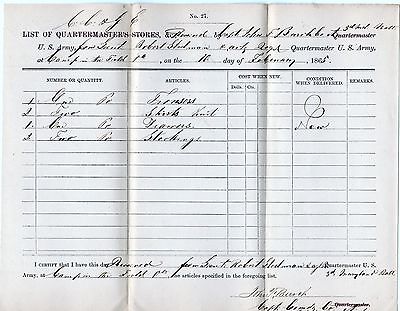 C. C. & G. E.
No. 27.
LIST OF QUARTERMASTER'S STORES, & Received Capt John T. 3rd Md Batt
Quartermaster
U. S. Army, from Lieut Robert Steelman Quartermaster U. S. Army,
at Camp in the Field Va on the 1st day of February 1865
NUMBER OR QUANTITY. ARTICLES. COST WHEN NEW. CONDITION WHEN DELIVERED. REMARKS.
Dolls. Cts.
1 One Pr Trousers
2 Two Shirts Knit
1 One Pr Drawers New
2 Two Pr Stockings
I CERTIFY that I have this day Received from Lieut. Robert Steelman Quartermaster U. S.
Army, at Camp in the Field Va the articles specified in the foregoing list. 3d Maryland Batt
John T.
Quartermaster.
Capt. Comdg Co